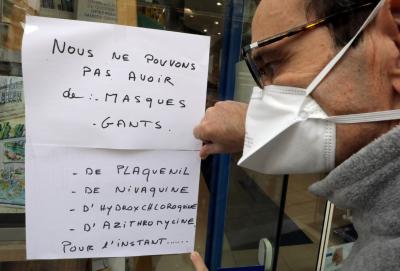 NOUS NE POUVONS
PAS AVOIR
de:- MASQUES
- GANTS.
- DE PLAQUENIL
- DE NIVAQUINE
- D'HYDROXCHLOROQUINE
- D'AZITHROMYCINE
POUR L'INSTANT......